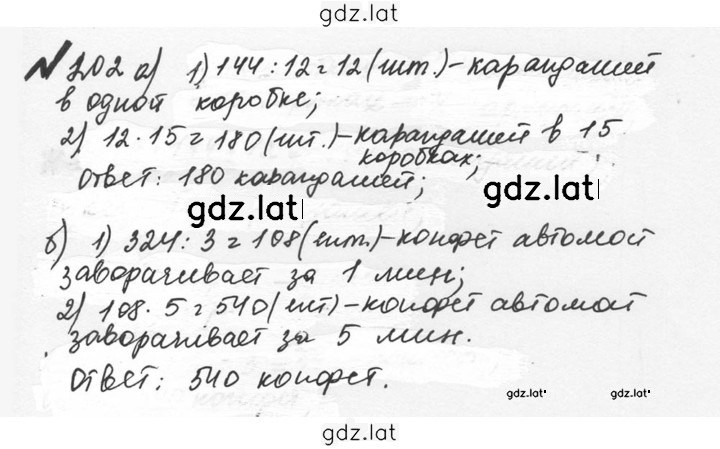 gdz.lat
№ 202 а) 1) 144 : 12 = 12 (шт.) - карандашей
в одной коробке;
2) 12 · 15 = 180 (шт.) - карандашей в 15
коробках;
Ответ: 180 карандашей;
gdz.lat
gdz.lat
б) 1) 324 : 3 = 108 (шт.) - конфет автомат
заворачивает за 1 мин;
2) 108 · 5 = 540 (шт) - конфет автомат
заворачивает за 5 мин.
Ответ: 540 конфет.
gdz.lat
gdz.lat
gdz.lat